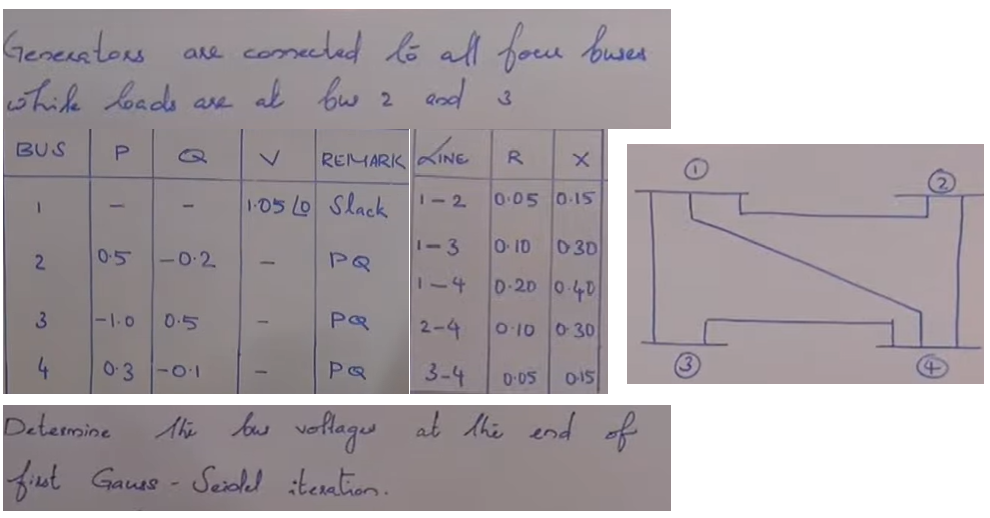 Generators are connected to all four buses
while loads are at bus 2 and 3
BUS P Q V REMARK
1 - - 1.05∠0 Slack
2 0.5 -0.2 - PQ
3 -1.0 0.5 - PQ
4 0.3 -0.1 - PQ
LINE R X
1-2 0.05 0.15
1-3 0.10 0.30
1-4 0.20 0.40
2-4 0.10 0.30
3-4 0.05 0.15
1
2
3
4
Determine the bus voltages at the end of
first Gauss-Seidel iteration.